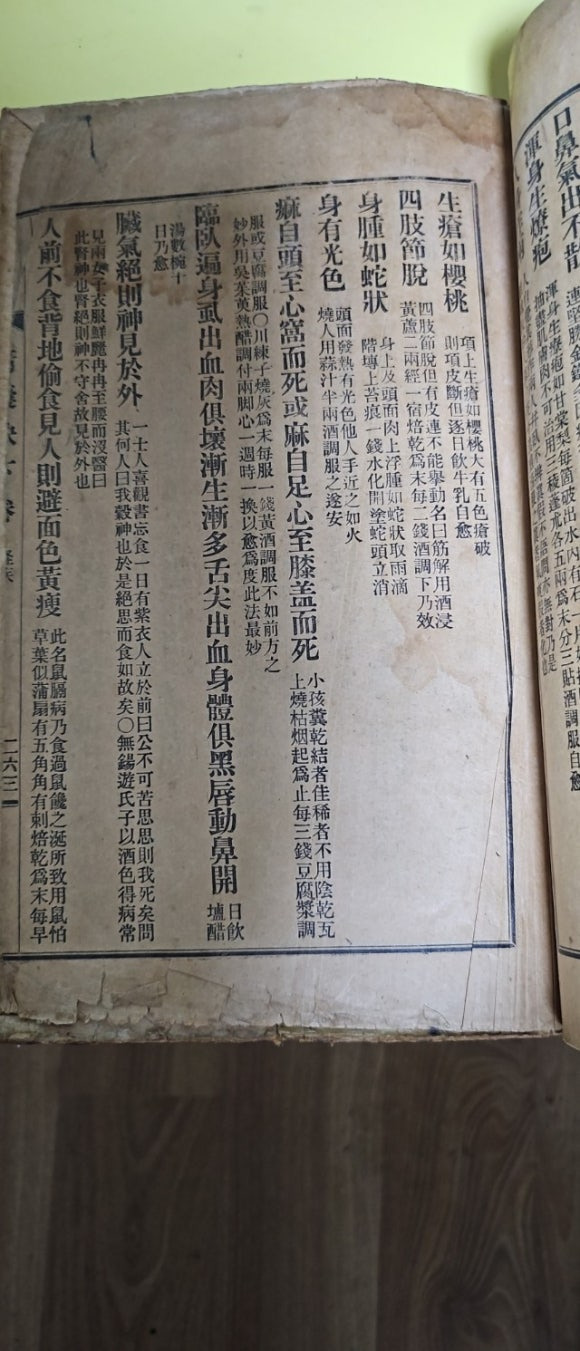 口鼻氣出不散
渾身生燎疱
渾身生燎疱如甘棠梨每箇破出水內有石
抽盡肌膚肉不可治用三稜蓬朮各五兩爲末分三貼酒調服自愈
生瘡如櫻桃
項上生瘡如櫻桃大有五色瘡破
則項皮斷但逐日飲牛乳自愈
四肢節脫
四肢節脫但有皮連不能舉動名曰筋解用酒浸
黃蘆二兩經一宿焙乾爲末每二錢酒調下乃效
身腫如蛇狀
身上及頭面肉上浮腫如蛇狀取雨滴
階塼上苔痕一錢水化開塗蛇頭立消
身有光色
頭面發熱有光色他人手近之如火
燒人用蒜汁半兩酒調服之遂安
痲自頭至心窩而死或麻自足心至膝盖而死
小孩糞乾結者佳稀者不用陰乾瓦
上燒枯烟起爲止每三錢豆腐漿調
服或豆腐調服〇川練子燒灰爲末每服一錢黃酒調服不如前方之
妙外用吳茱萸熱醋調付兩脚心一週時一換以愈爲度此法最妙
臨臥遍身虱出血肉俱壞漸生漸多舌尖出血身體俱黑唇動鼻開
日飲
壚醋
湯數椀十
日乃愈
臟氣絕則神見於外
一士人喜觀書忘食一日有紫衣人立於前曰公不可苦思思則我死矣問
其何人曰我穀神也於是絕思而食如故矣〇無錫遊氏子以酒色得病常
見兩女子衣服鮮麗冉冉至腰而沒醫曰
此腎神也腎絕則神不守舍故見於外也
人前不食背地偷食見人則避面色黃瘦
此名鼠膈病乃食過鼠饞之涎所致用鼠怕
草葉似蒲扇有五角角有刺焙乾爲末每早
二六三